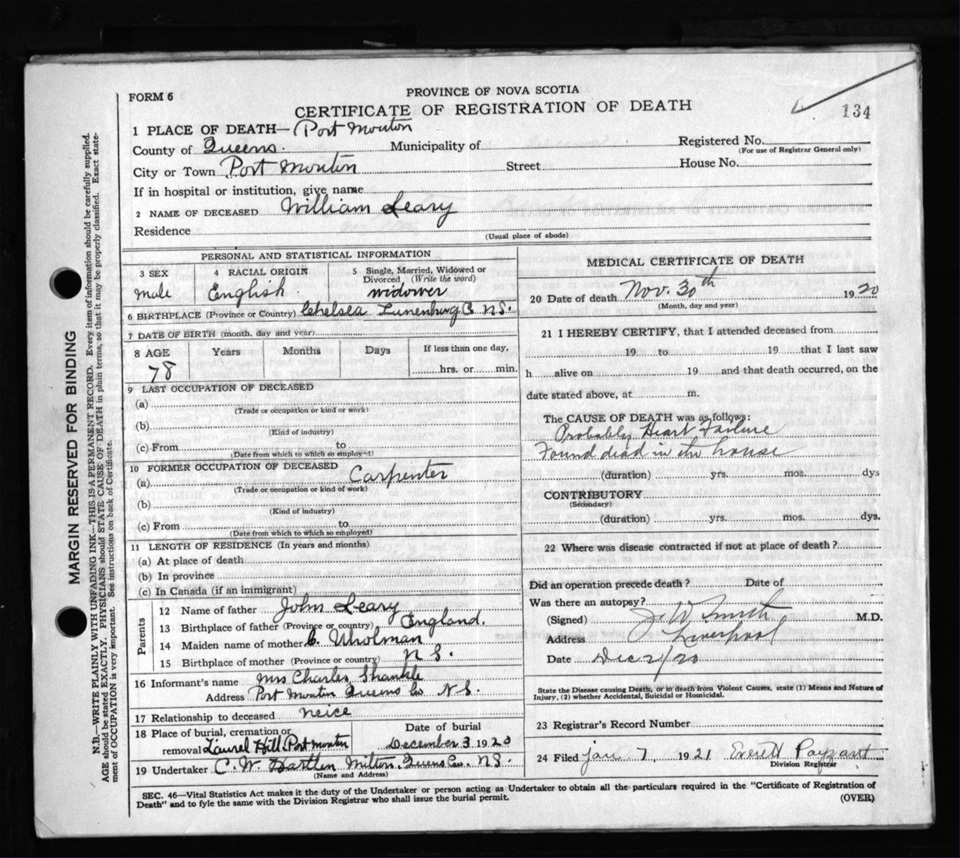 FORM 6
PROVINCE OF NOVA SCOTIA
CERTIFICATE OF REGISTRATION OF DEATH
134
1 PLACE OF DEATH— Port Mouton
County of Queens. Municipality of
Registered No.
(For use of Registrar General only)
City or Town Port Mouton Street House No.
If in hospital or institution, give name
2 NAME OF DECEASED William Leary
Residence
(Usual place of abode)
PERSONAL AND STATISTICAL INFORMATION
3 SEX 4 RACIAL ORIGIN 5 Single, Married, Widowed or Divorced (Write the word)
Male English. widower
6 BIRTHPLACE (Province or Country) Chelsea Lunenburg Co N.S.
7 DATE OF BIRTH (month, day and year)
8 AGE Years Months Days If less than one day,
78 hrs. or min.
9 LAST OCCUPATION OF DECEASED
(a)
(Trade or occupation or kind or work)
(b)
(Kind of industry)
(c) From to
(Date from which to which so employed)
10 FORMER OCCUPATION OF DECEASED
(a) Carpenter
(Trade or occupation or kind of work)
(b)
(Kind of industry)
(c) From to
(Date from which to which so employed)
11 LENGTH OF RESIDENCE (In years and months)
(a) At place of death
(b) In province
(c) In Canada (if an immigrant)
Parents
12 Name of father John Leary
13 Birthplace of father (Province or country) England.
14 Maiden name of mother C.
15 Birthplace of mother (Province or country) N S.
16 Informant's name Mrs Charles Shankle
Address Port Mouton Queens Co N.S.
17 Relationship to deceased neice
18 Place of burial, cremation or removal Laurel Hill Port Mouton
Date of burial December 3 1920
19 Undertaker C. W. Bartlen Milton. Queens Co. N.S.
(Name and Address)
MEDICAL CERTIFICATE OF DEATH
20 Date of death Nov. 30th 1920
(Month, day and year)
21 I HEREBY CERTIFY, that I attended deceased from
19 to 19 that I last saw
h alive on 19 and that death occurred, on the
date stated above, at m.
The CAUSE OF DEATH was as follows:
Probably Heart Failure
Found dead in the house
(duration) yrs. mos. dys
CONTRIBUTORY
(Secondary)
(duration) yrs. mos. dys.
22 Where was disease contracted if not at place of death?
Did an operation precede death? Date of
Was there an autopsy?
(Signed) J. W. Smith M.D.
Address Liverpool
Date Dec 2/20
State the Disease causing Death, or in death from Violent Causes, state (1) Means and Nature of
Injury, (2) whether Accidental, Suicidal or Homicidal.
23 Registrar's Record Number
24 Filed Jan 7 1921 Everett Payzant
Division Registrar
SEC. 46—Vital Statistics Act makes it the duty of the Undertaker or person acting as Undertaker to obtain all the particulars required in the "Certificate of Registration of
Death" and to fyle the same with the Division Registrar who shall issue the burial permit.
(OVER)
MARGIN RESERVED FOR BINDING
N.B.—WRITE PLAINLY WITH UNFADING INK—THIS IS A PERMANENT RECORD. Every item of information should be carefully supplied.
AGE should be stated EXACTLY. PHYSICIANS should STATE CAUSE OF DEATH in plain terms, so that it may be properly classified. Exact state-
ment of OCCUPATION is very important. See instructions on back of Certificate.